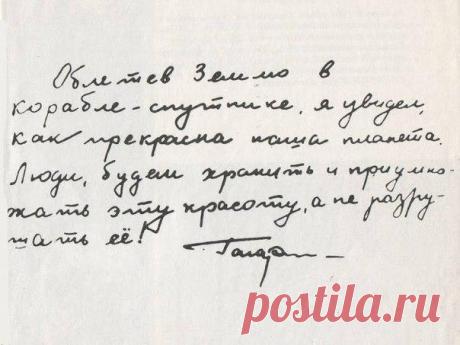 Облетев Землю в
корабле-спутнике, я увидел,
как прекрасна наша планета.
Люди, будем хранить и приумно-
жать эту красоту, а не разру-
шать её!
Гагарин
postila.ru